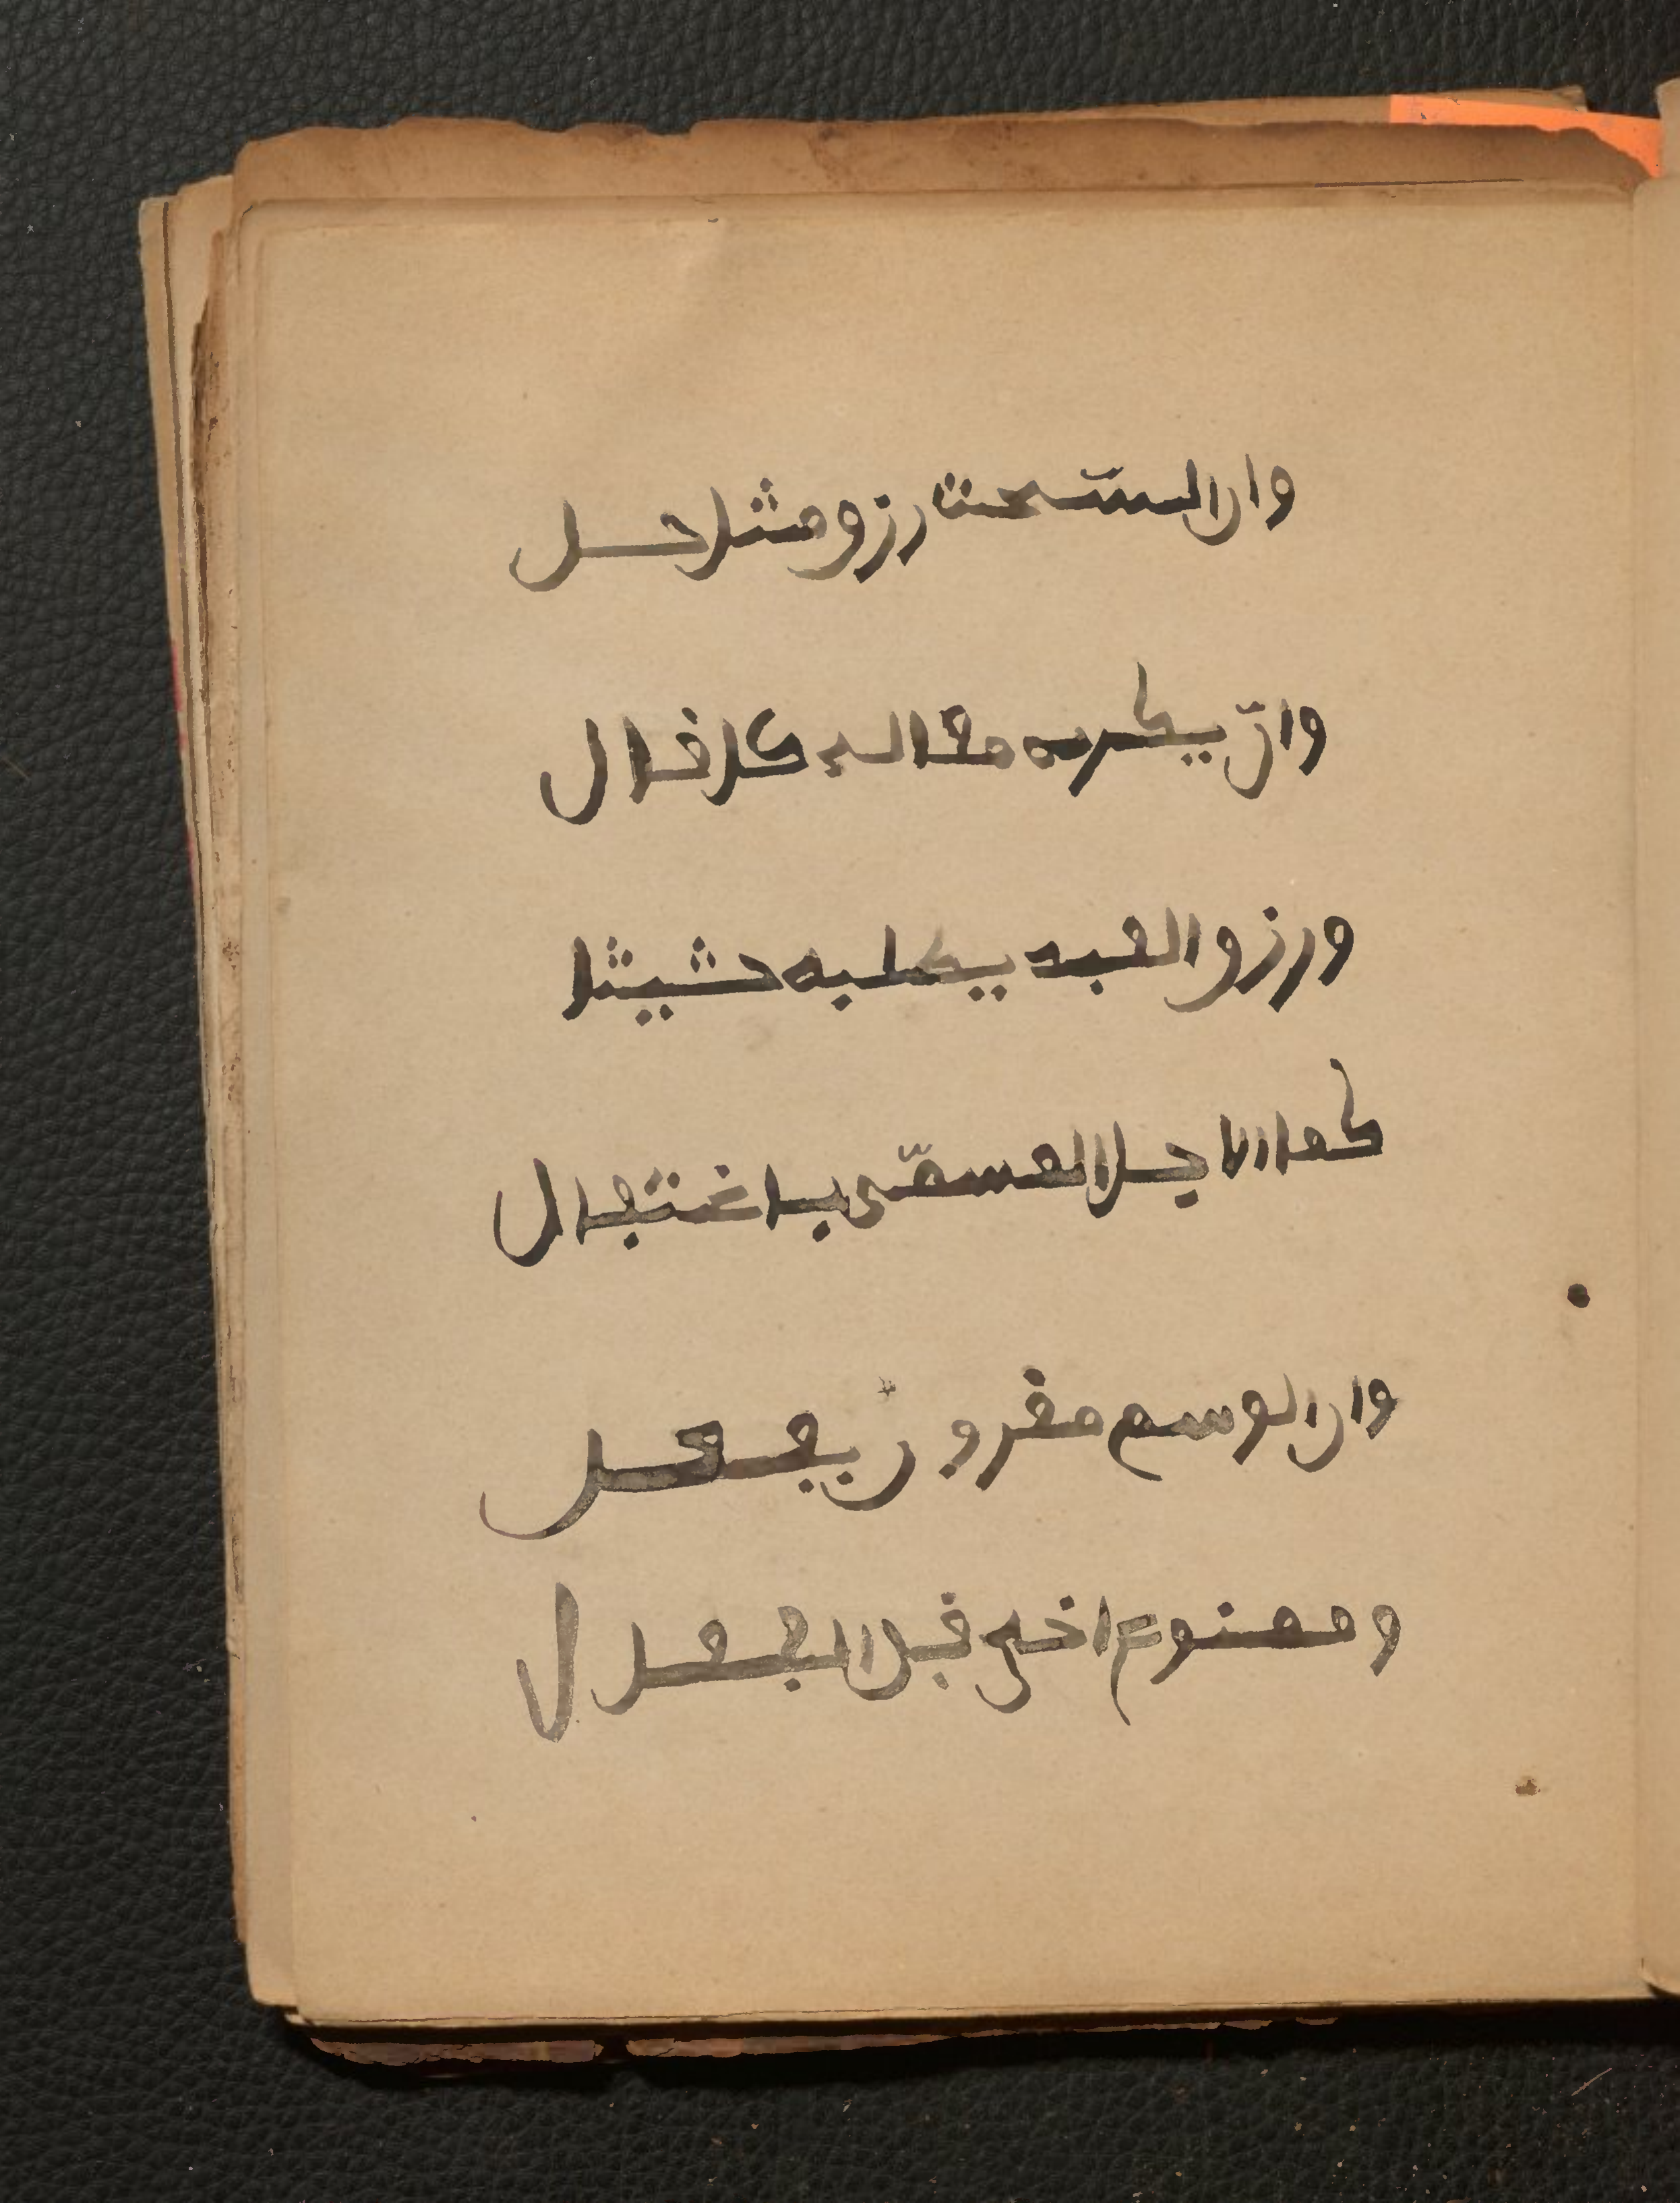 وان السحت رزق مثل حل
وان يكره مقاله كل قال
ورزق العبد يطلبه حثيثا
كما الاجل المسمّى باغتيال
وان الوسم مقرون بفعل
وممنوع اخي قبل الفعال